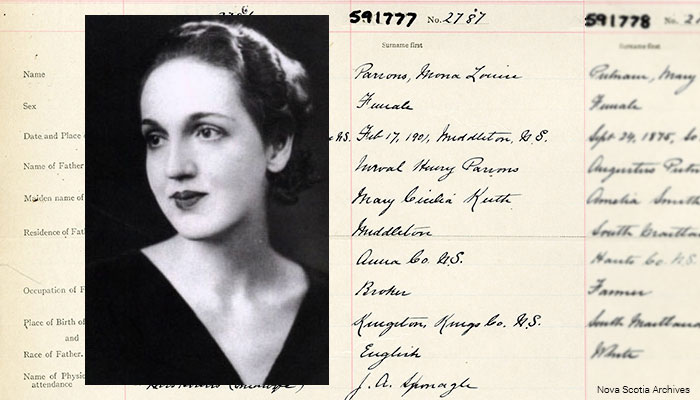 591777 No. 2787
591778 No.
Surname first
Surname first
Name
Parsons, Mona Louise
Putnam, Mary
Sex
Female
Female
Date and Place
N.S.
Feb 17, 1901, Middleton, N.S.
Sept 24, 1875, So.
Name of Father
Norval Henry Parsons
Augustus Putn
Maiden name of
Mary Cecilia Keith
Amelia Smith
Residence of Fath
Middleton
South Maitland
Anna Co. N.S.
Hants Co. N.S.
Occupation of F
Broker
Farmer
Place of Birth of
Kingston, Kings Co. N.S.
South Maitland
and
Race of Father.
English
White
Name of Physic
attendance
J. A. Sponagle
Nova Scotia Archives